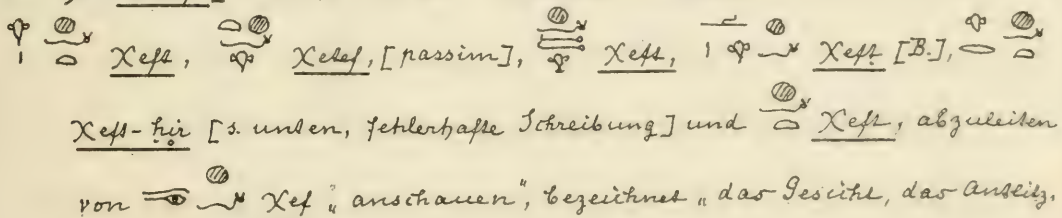 Xeft, Xetef, [passim], Xeft, Xeft [B.],
Xeft-ḥir [s. unten, fehlerhafte Schreibung] und Xeft, abzuleiten
von Xef „anschauen“, bezeichnet „das Gesicht, das Antlitz.